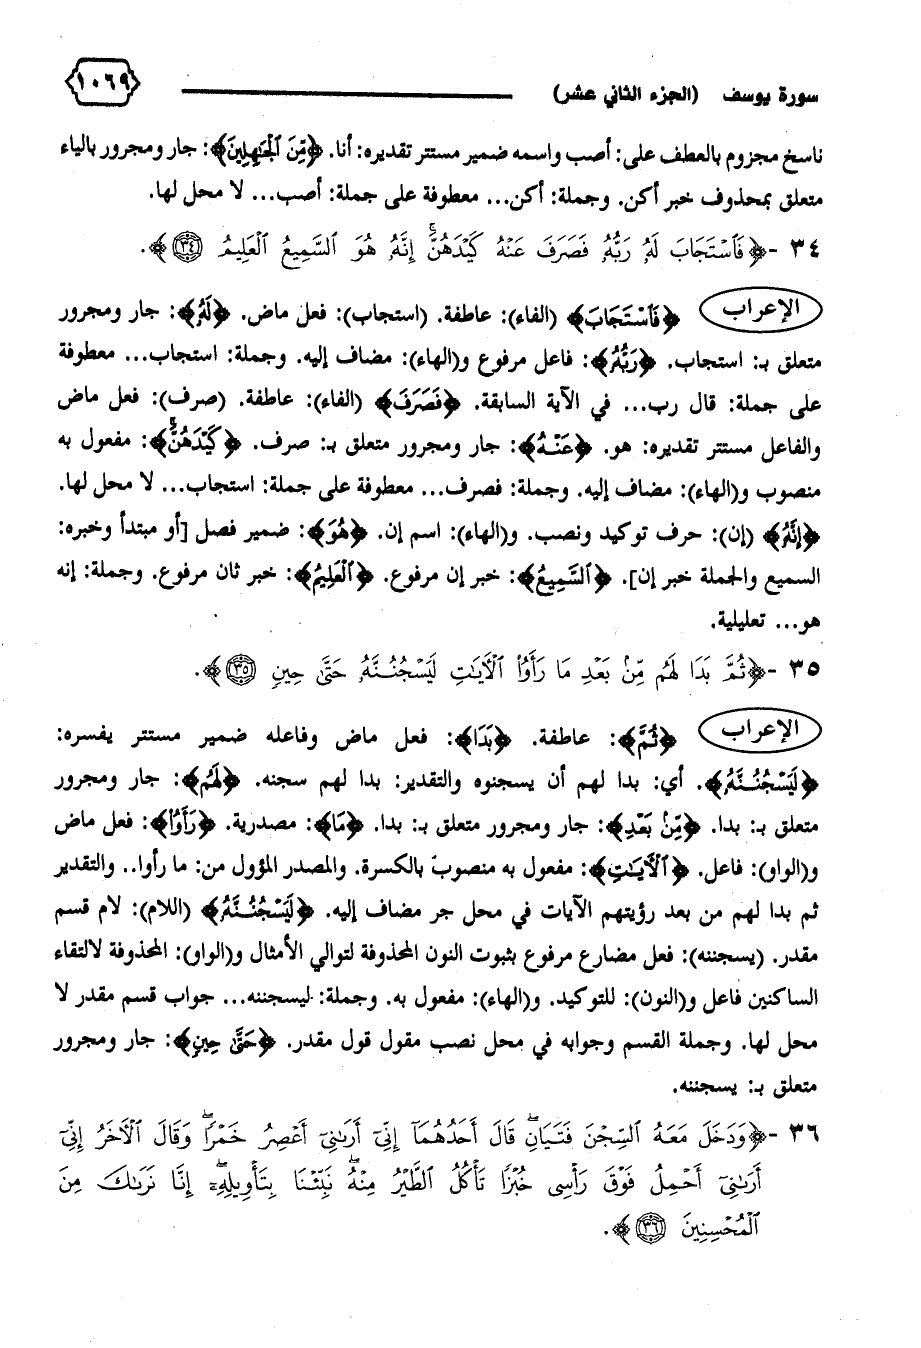 سورة يوسف (الجزء الثاني عشر) ١٠٦٩
ناسخ مجزوم بالعطف على: أصب واسمه ضمير مستتر تقديره: أنا. ﴿مِّنَ ٱلۡجَٰهِلِينَ﴾: جار ومجرور بالياء
متعلق بمحذوف خبر أكن. وجملة: أكن... معطوفة على جملة: أصب... لا محل لها.
٣٤ - ﴿فَٱسۡتَجَابَ لَهُۥ رَبُّهُۥ فَصَرَفَ عَنۡهُ كَيۡدَهُنَّۚ إِنَّهُۥ هُوَ ٱلسَّمِيعُ ٱلۡعَلِيمُ ٣٤﴾.
الإعراب ﴿فَٱسۡتَجَابَ﴾ (الفاء): عاطفة. (استجاب): فعل ماض. ﴿لَهُۥ﴾: جار ومجرور
متعلق بـ: استجاب. ﴿رَبُّهُۥ﴾: فاعل مرفوع و(الهاء): مضاف إليه. وجملة: استجاب... معطوفة
على جملة: قال رب... في الآية السابقة. ﴿فَصَرَفَ﴾ (الفاء): عاطفة. (صرف): فعل ماض
والفاعل مستتر تقديره: هو. ﴿عَنۡهُ﴾: جار ومجرور متعلق بـ: صرف. ﴿كَيۡدَهُنَّۚ﴾: مفعول به
منصوب و(الهاء): مضاف إليه. وجملة: فصرف... معطوفة على جملة: استجاب... لا محل لها.
﴿إِنَّهُۥ﴾ (إن): حرف توكيد ونصب. و(الهاء): اسم إن. ﴿هُوَ﴾: ضمير فصل [أو مبتدأ وخبره:
السميع والجملة خبر إن]. ﴿ٱلسَّمِيعُ﴾: خبر إن مرفوع. ﴿ٱلۡعَلِيمُ﴾: خبر ثان مرفوع. وجملة: إنه
هو... تعليلية.
٣٥ - ﴿ثُمَّ بَدَا لَهُم مِّنۢ بَعۡدِ مَا رَأَوُاْ ٱلۡأٓيَٰتِ لَيَسۡجُنُنَّهُۥ حَتَّىٰ حِينٖ ٣٥﴾.
الإعراب ﴿ثُمَّ﴾: عاطفة. ﴿بَدَا﴾: فعل ماض وفاعله ضمير مستتر يفسره:
﴿لَيَسۡجُنُنَّهُۥ﴾. أي: بدا لهم أن يسجنوه والتقدير: بدا لهم سجنه. ﴿لَهُم﴾: جار ومجرور
متعلق بـ: بدا. ﴿مِّنۢ بَعۡدِ﴾: جار ومجرور متعلق بـ: بدا. ﴿مَا﴾: مصدرية. ﴿رَأَوُاْ﴾: فعل ماض
و(الواو): فاعل. ﴿ٱلۡأٓيَٰتِ﴾: مفعول به منصوبٌ بالكسرة. والمصدر المؤول من: ما رأوا.. والتقدير
ثم بدا لهم من بعد رؤيتهم الآيات في محل جر مضاف إليه. ﴿لَيَسۡجُنُنَّهُۥ﴾ (اللام): لام قسم
مقدر. (يسجننه): فعل مضارع مرفوع بثبوت النون المحذوفة لتوالي الأمثال و(الواو): المحذوفة لالتقاء
الساكنين فاعل و(النون): للتوكيد. و(الهاء): مفعول به. وجملة: ليسجننه... جواب قسم مقدر لا
محل لها. وجملة القسم وجوابه في محل نصب مقول قول مقدر. ﴿حَتَّىٰ حِينٖ﴾: جار ومجرور
متعلق بـ: يسجننه.
٣٦ - ﴿وَدَخَلَ مَعَهُ ٱلسِّجۡنَ فَتَيَانِۖ قَالَ أَحَدُهُمَآ إِنِّيٓ أَرَىٰنِيٓ أَعۡصِرُ خَمۡرٗاۖ وَقَالَ ٱلۡأٓخَرُ إِنِّيٓ
أَرَىٰنِيٓ أَحۡمِلُ فَوۡقَ رَأۡسِي خُبۡزٗا تَأۡكُلُ ٱلطَّيۡرُ مِنۡهُۖ نَبِّئۡنَا بِتَأۡوِيلِهِۦٓۖ إِنَّا نَرَىٰكَ مِنَ
ٱلۡمُحۡسِنِينَ ٣٦﴾.